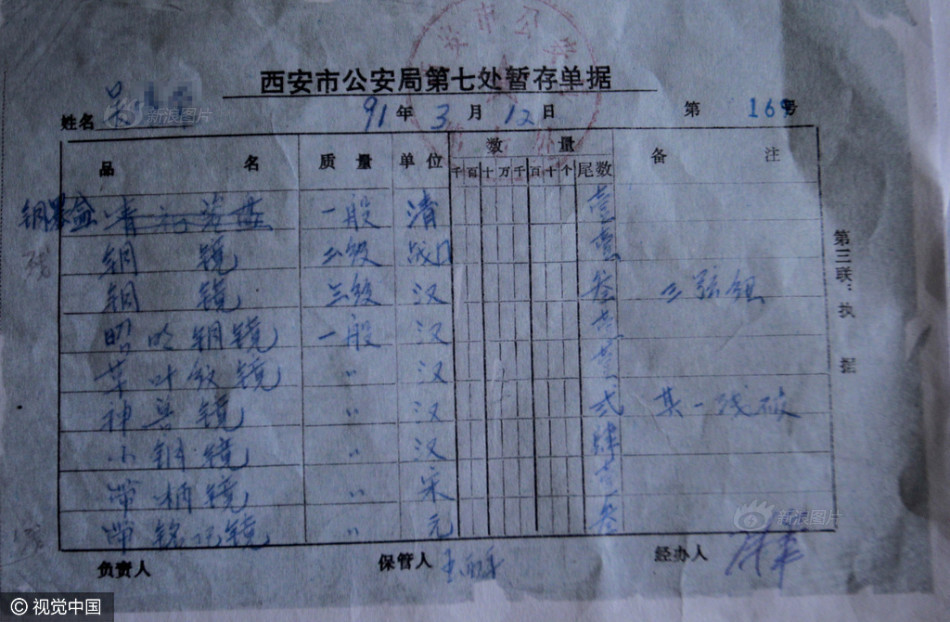 西安市公安局第七处暂存单据
姓名 吴 91年3月12日 第169号
品名 质量 单位 数量 备注
千百十万千百十个 尾数
铜墨盒 一般 清 壹
铜镜 二级 战国 壹
铜镜 三级 汉 叁 三弦钮
昭明铜镜 一般 汉 壹
草叶纹镜 〃 汉 壹
神兽镜 〃 汉 弍 其一残破
小铜镜 〃 汉 肆
带柄镜 〃 宋 壹
带铭文镜 〃 元 叁
负责人 保管人 经办人
第三联：执据
新浪图片
新浪图片
© 视觉中国